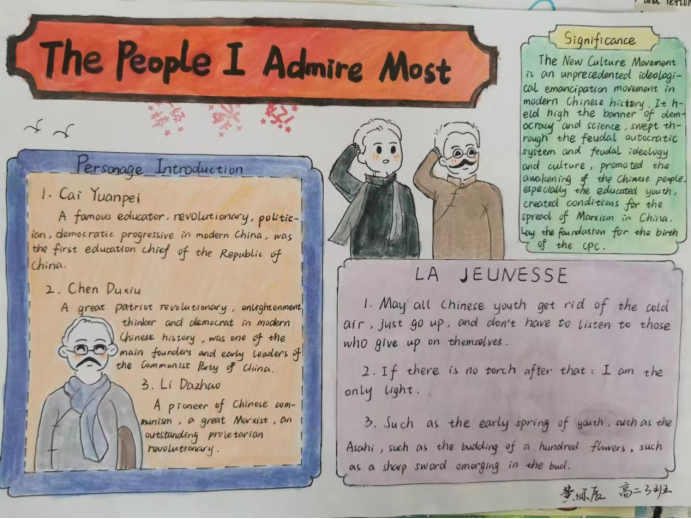 The People I Admire Most
Personage Introduction
1. Cai Yuanpei
A famous educator, revolutionary, politic-
ion, democratic progressive in modern China, was
the first education chief of the Republic of
China.
2. Chen Duxiu
A great patriot revolutionary, enlightenment
thinker and democrat in modern
Chinese history, was one of the
main founders and early leaders of
the Communist Party of China.
3. Li Dazhao
A pioneer of Chinese com-
munism, a great Marxist, an
outstanding proletarian
revolutionary.
Significance
The New Culture Movement
is an unprecedented ideologi-
cal emancipation movement in
modern Chinese history. It h-
eld high the banner of dem-
ocracy and science, swept th-
rough the feudal autocratic
system and feudal ideology
and culture, promoted the
awakening of the Chinese people.
especially the educated youth,
created conditions for the
spread of Marxism in China.
lay the foundation for the birth
of the CPC.
LA JEUNESSE
1. May all Chinese youth get rid of the cold
air, just go up, and don't have to listen to those
who give up on themselves.
2. If there is no torch after that: I am the
only light.
3. Such as the early spring of youth, such as the
Asahi, such as the budding of a hundred flowers, such
as a sharp sword emerging in the bud.
高二3班